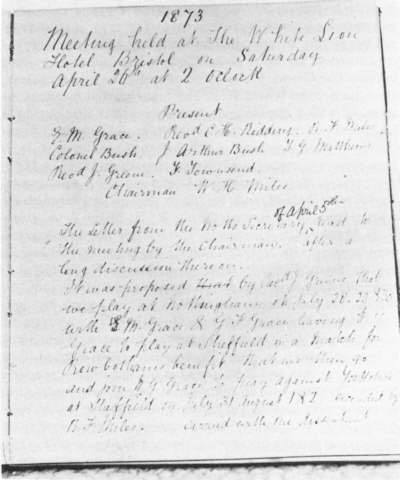 1873
Meeting held at The White Lion
Hotel Bristol on Saturday
April 26th at 2 oclock
Present
E M Grace. Revd C H Ridding. R F Miles
Colonel Bush J Arthur Bush T G Matthews
Revd J. Greene. F Townsend.
Chairman W H Miles
of April 5th
The Letter from the Notts Secretary read to
the meeting by the Chairman. after a
long discussion thereon.
It was proposed by Revd J Greene that
we play at Nottingham on July 28. 29 &30
with E M Grace & G F Grace leaving W G
Grace to play at Sheffield in a match for
benefit that we then go
and join W G Grace to play against Yorkshire
at Sheffield on July 31 August 1 & 2 seconded by
R F Miles. Carried with the